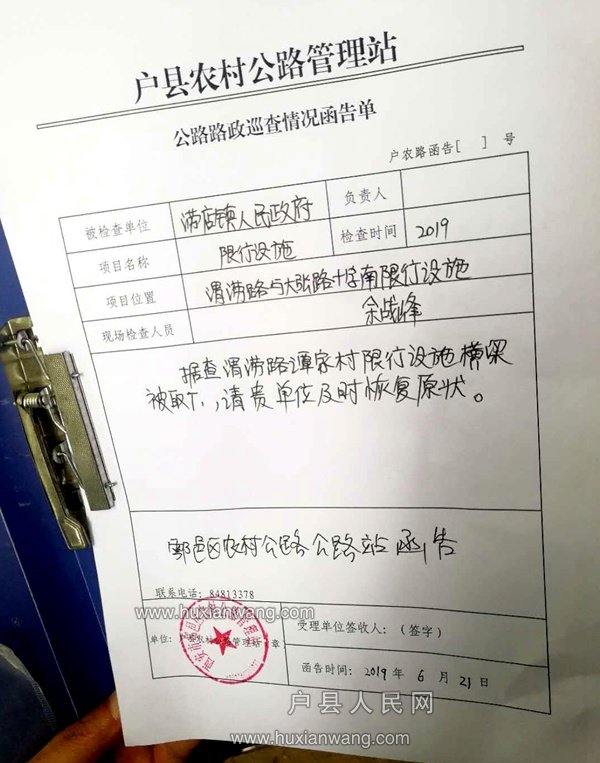 户县农村公路管理站
公路路政巡查情况函告单
户农路函告[ ] 号
被检查单位 涝店镇人民政府 负责人
项目名称 限行设施 检查时间 2019
项目位置 渭涝路与大张路十字南限行设施
现场检查人员 余战峰
据查渭涝路谭家村限行设施横梁
被取下,请贵单位及时恢复原状。
鄠邑区农村公路公路站函告
联系电话:84813378
www.huxianwang.com
单位:户县农村公路管理站(章)
受理单位签收人:(签字)
函告时间:2019年6月21日
户县人民网
www.huxianwang.com